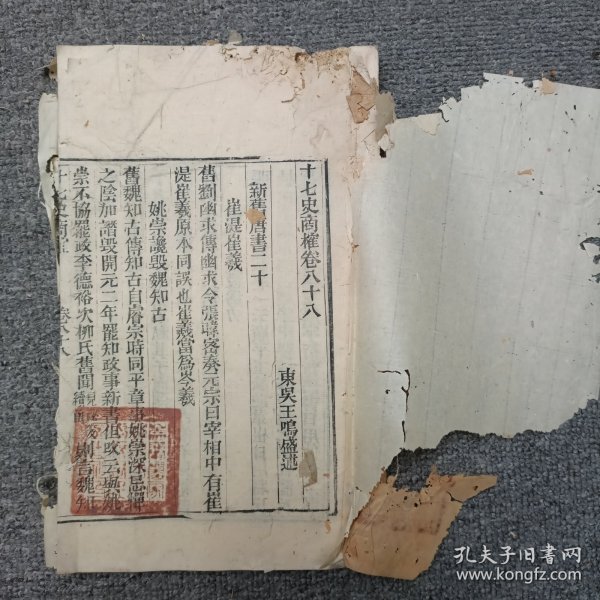 十七史商榷卷八十八
東吳王鳴盛述
新舊唐書二十
崔湜崔羲
舊劉幽求傳幽求令張暐密奏元宗曰宰相中有崔
湜崔羲原本同誤也崔羲當為岑羲
姚崇讒毀魏知古
舊魏知古傳知古自睿宗時同平章事姚崇深忌憚
之陰加讒毀開元二年罷知政事新書但改云與姚
崇不協罷政李德裕次柳氏舊聞 則言魏知
十七史商 卷八十八
孔夫子旧书网
www.kongfz.com